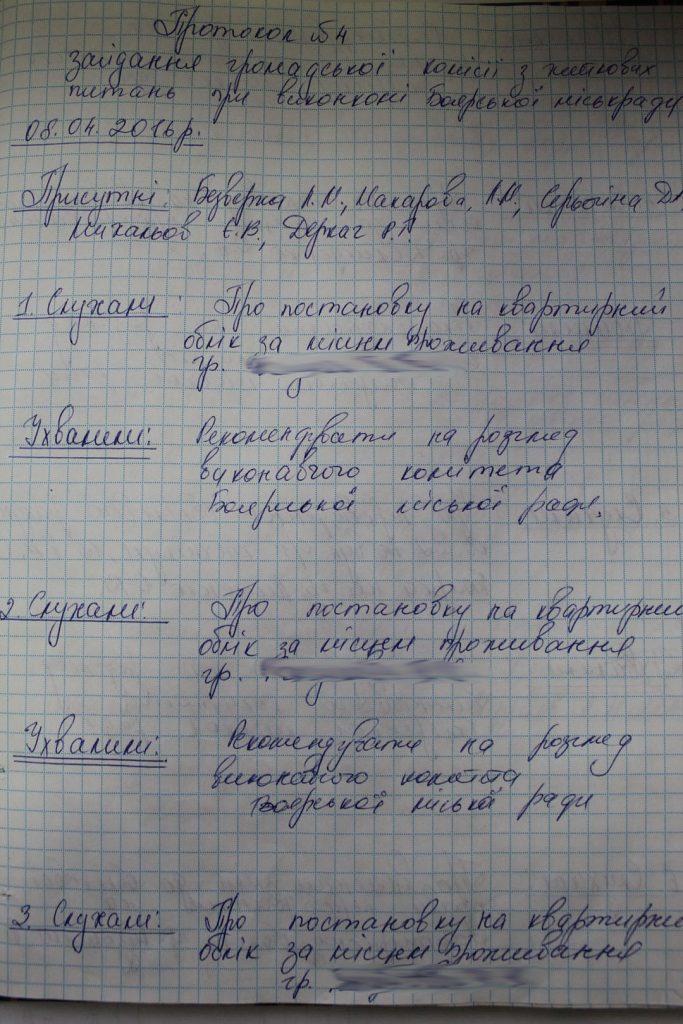 Протокол №4
засідання громадської комісії з житлових
питань при виконкомі Боярської міськради
08.04.2016р.
Присутні: Безверха Л.М., Макарова Л.М., Серьогіна Д.
Михальов Є.В., Деркач Р.Г.
1. Слухали: Про постановку на квартирний
облік за місцем проживання
гр.
Ухвалили: Рекомендувати на розгляд
виконавчого комитета
Боярської міської ради.
2. Слухали: Про постановку на квартирний
облік за місцем проживання
гр.
Ухвалили: Рекомендувати на розгляд
виконавчого комітета
Боярської міської ради
3. Слухали: Про постановку на квартирни
облік за місцем проживання
гр.